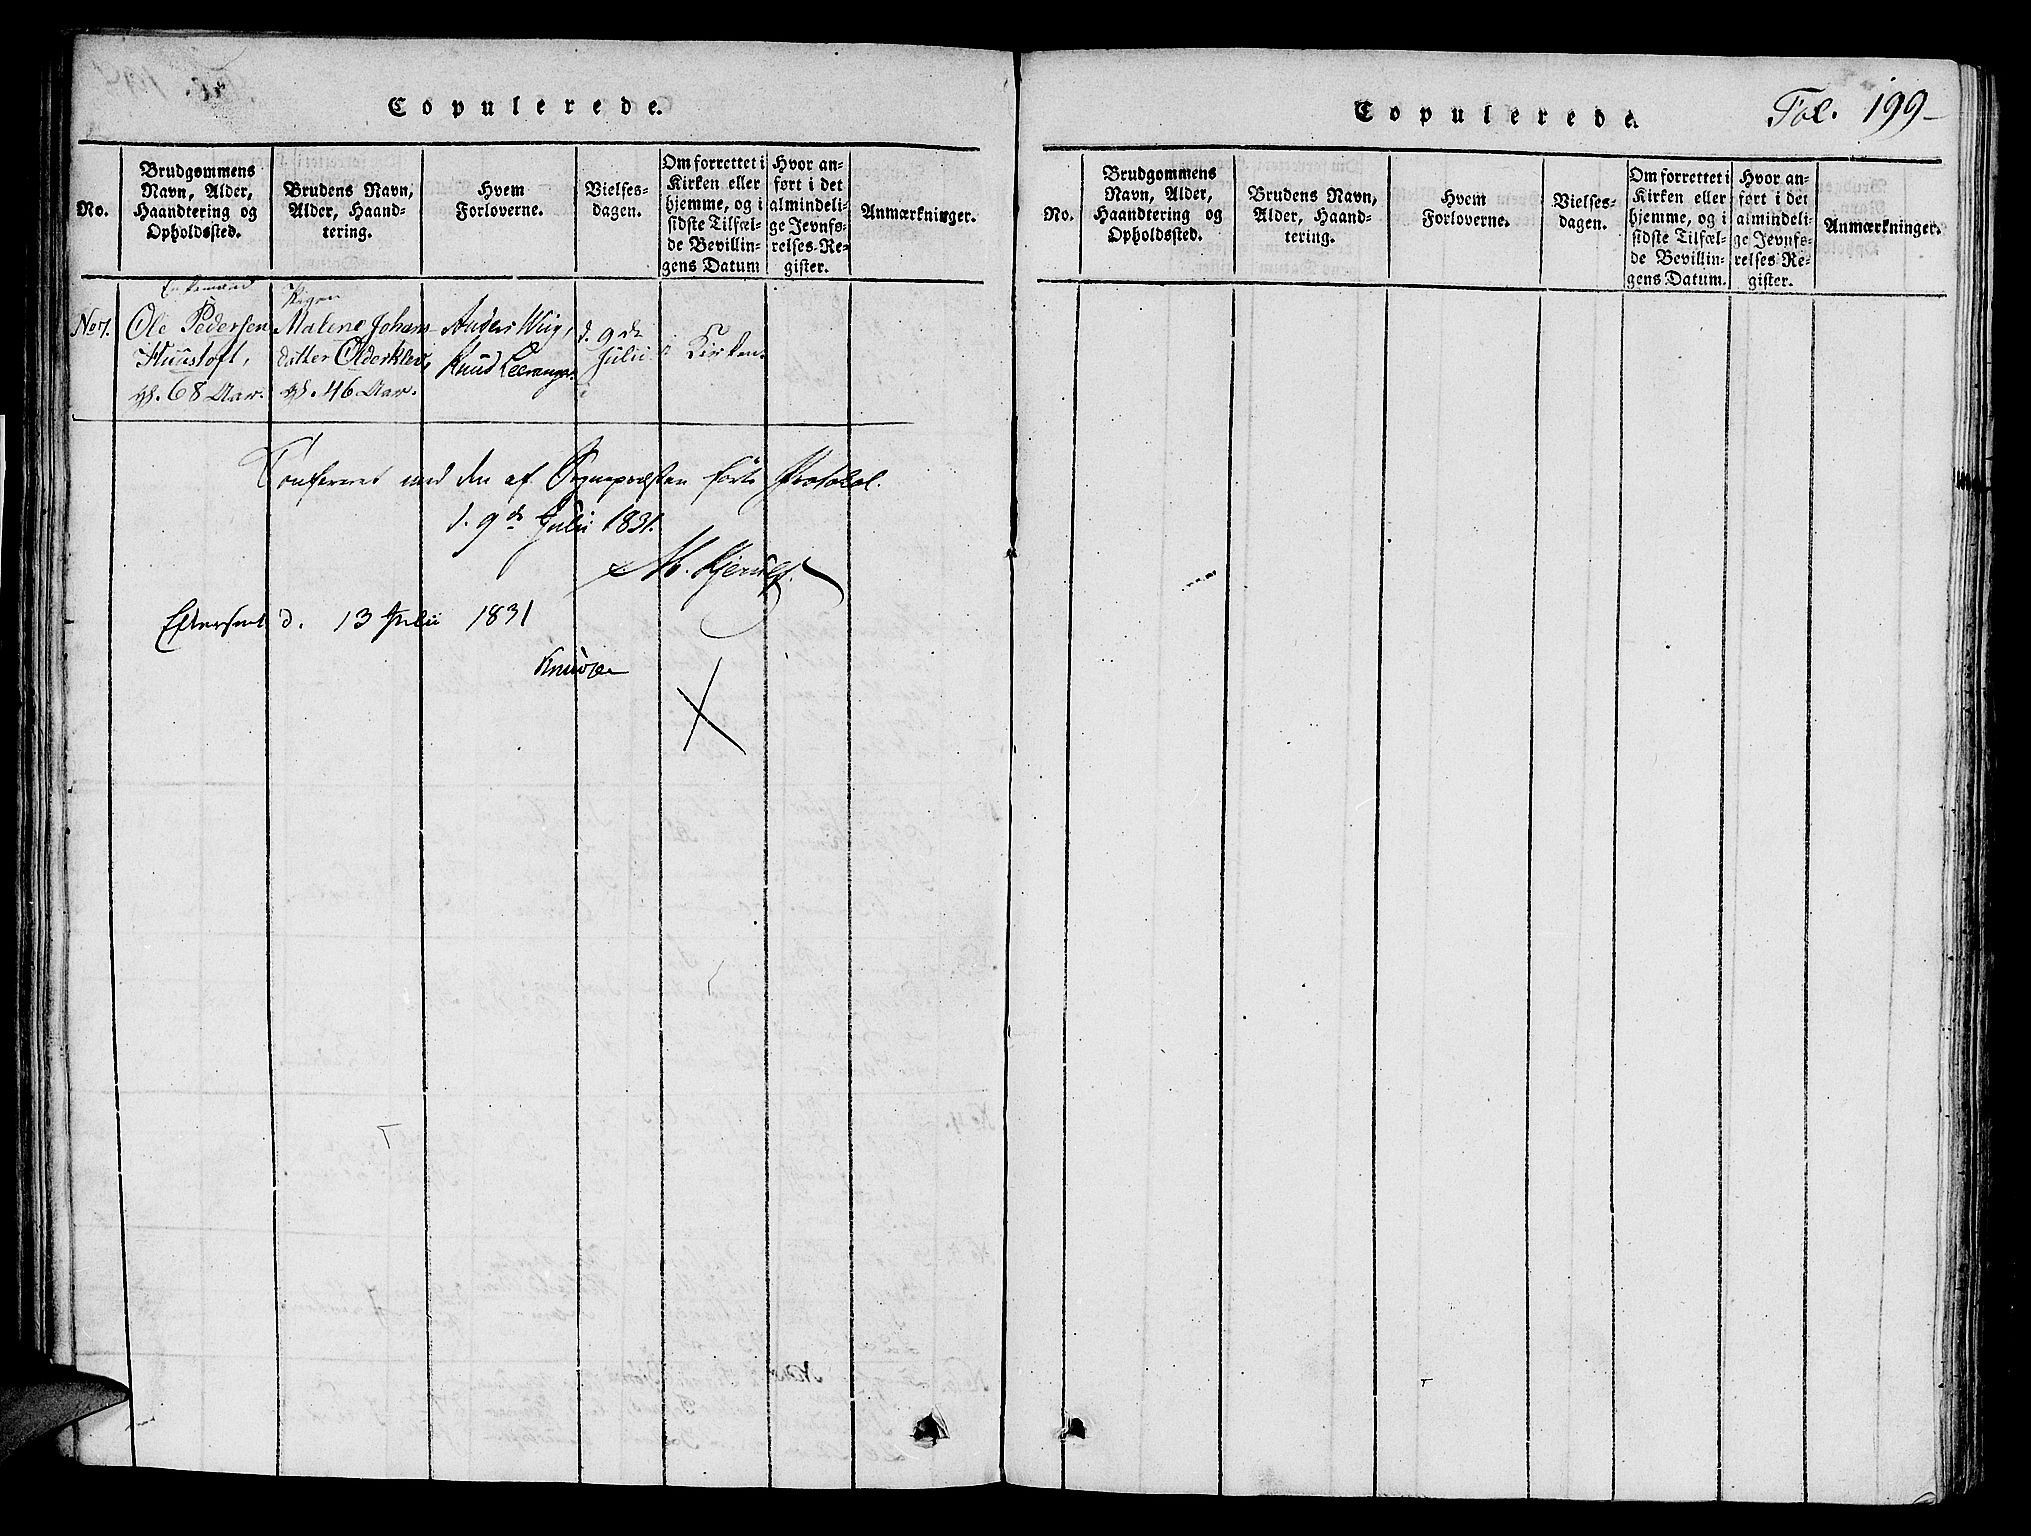 Copulerede.
No.
Brudgommens
Navn, Alder,
Haandtering og
Opholdssted.
Brudens Navn,
Alder, Haand-
tering.
Hvem
Forloverne.
Vielses-
dagen.
Om forrettet i
Kirken eller
hjemme, og i
sidste Tilfæl-
de Bevillin-
gens Datum
Hvor an-
ført i det
almindeli-
ge Jevnfø-
relses-Re-
gister.
Anmærkninger.
No 7.
Enkemand
Ole Pedersen
68 Aar.
Pigen
Malene Johans-
datter Olderkler,
46 Aar.
Anders Wiig,
Knud
d. 9de
Julii
Kirken.
Confereret med den af Sognepræsten førte Protokol.
d. 9de Julii 1831.
M. Kjerulf.
Efterseet d. 13 Julii 1831
Knudsen
Copulerede.
Fol. 199
No.
Brudgommens
Navn, Alder,
Haandtering og
Opholdssted.
Brudens Navn,
Alder, Haand-
tering.
Hvem
Forloverne.
Vielses-
dagen.
Om forrettet i
Kirken eller
hjemme, og i
sidste Tilfæl-
de Bevillin-
gens Datum.
Hvor an-
ført i det
almindeli-
ge Jevnfø-
relses Re-
gister.
Anmærkninger.